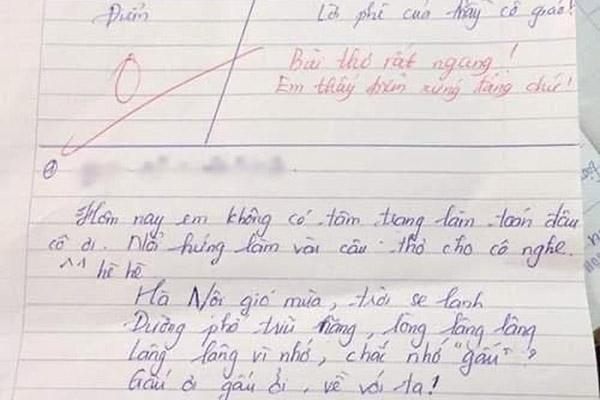 Điểm
Lời phê của thầy cô giáo!
0
Bài thơ rất ngang!
Em thấy điểm xứng đáng chứ!
Hôm nay em không có tâm trạng làm toán đâu
cô ơi. Nổi hứng làm vài câu thơ cho cô nghe.
^^ hề hề
Hà Nội gió mùa, trời se lạnh
Đường phố trĩu nặng, lòng lâng lâng
Lâng lâng vì nhớ, chắc nhớ "gấu"?
Gấu ơi gấu ổi, về với ta!